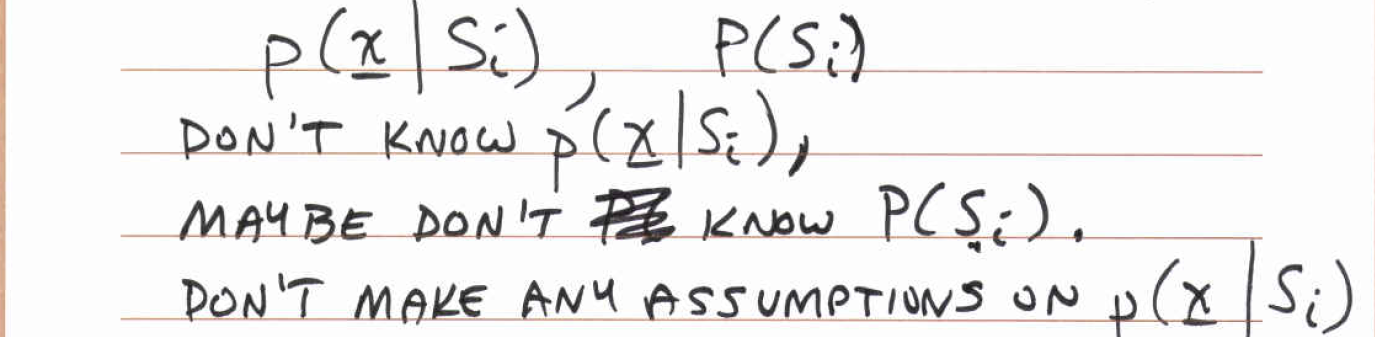 p(x | Si), P(Si)
DON'T KNOW p(x|Si),
MAYBE DON'T KNOW P(Si).
DON'T MAKE ANY ASSUMPTIONS ON p(x | Si)